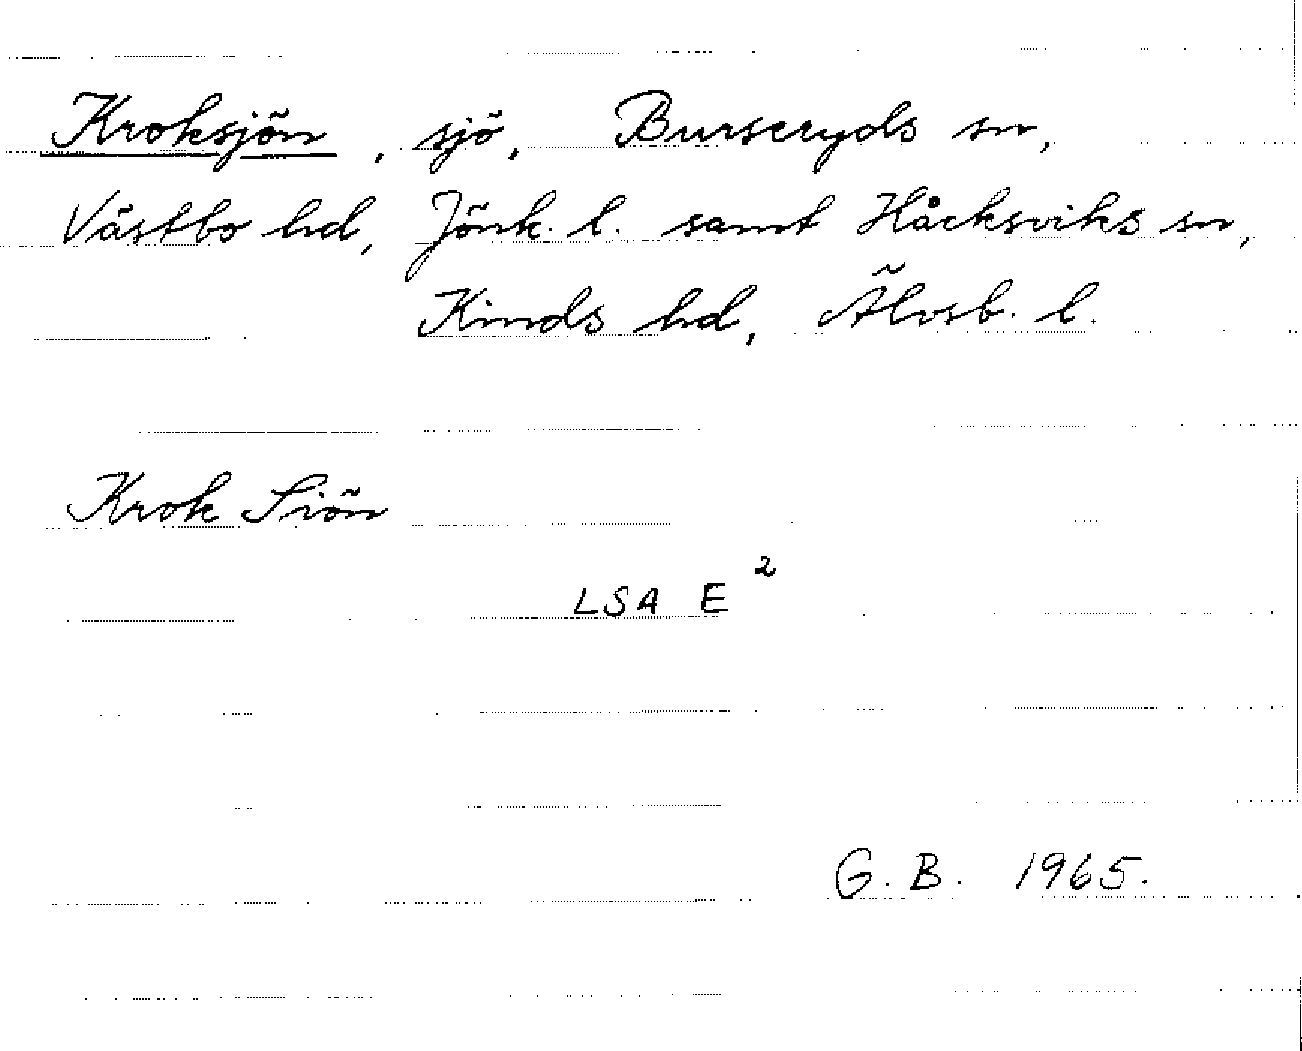 Kroksjön, sjö, Burseryds sn,
Västbo hd, Jönk. l. samt Håcksviks sn,
Kinds hd, Älvsb. l.
Krok Siön
LSA E²
G. B. 1965.